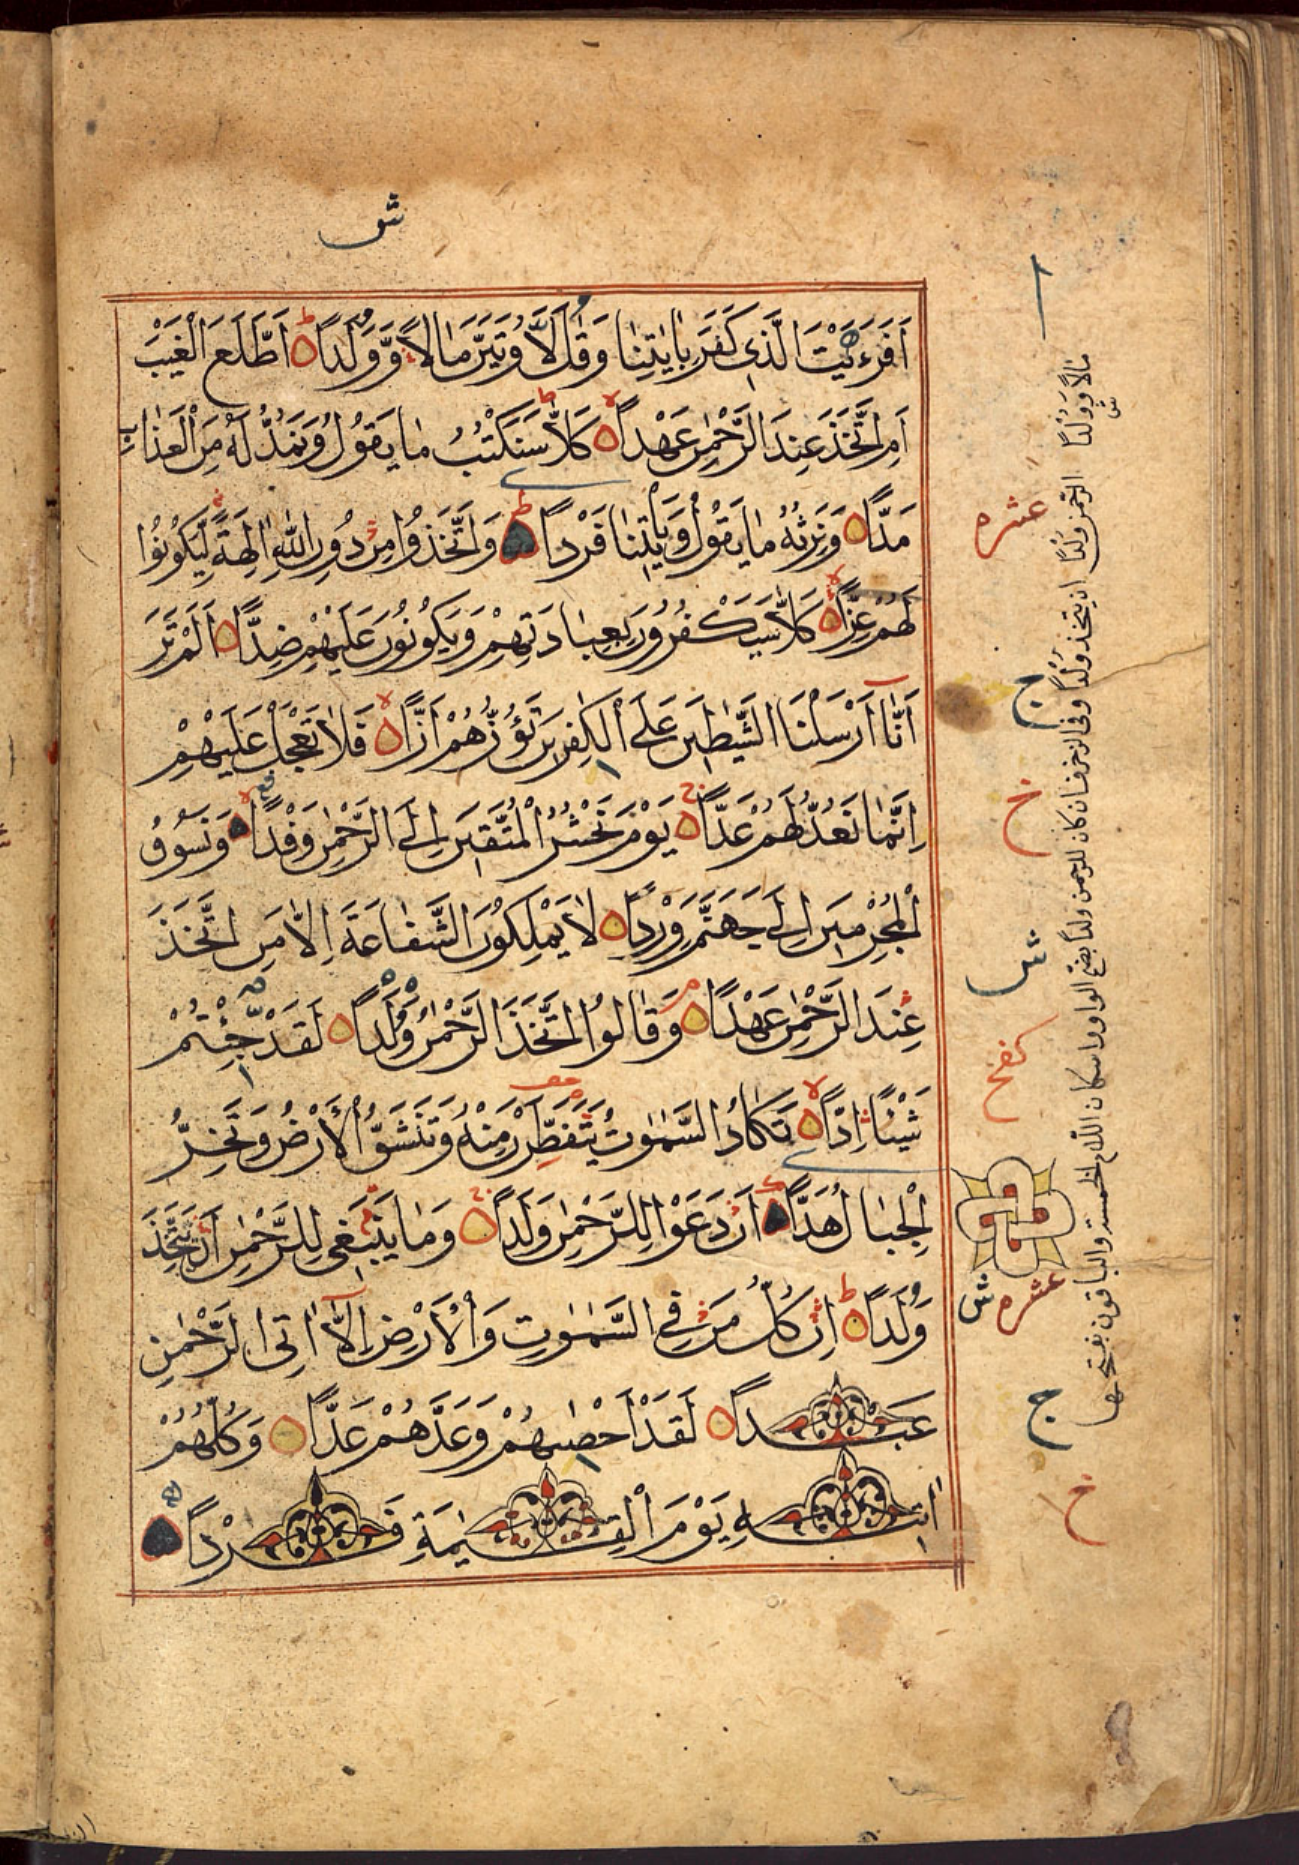 ش
أَفَرَءَيْتَ الَّذِي كَفَرَ بِاٰيٰتِنَا وَقَالَ لَأُوتَيَنَّ مَالًا وَّوَلَدًا ط اَطَّلَعَ الْغَيْبَ
اَمِ اتَّخَذَ عِنْدَ الرَّحْمٰنِ عَهْدًا لا كَلَّا ط سَنَكْتُبُ مَا يَقُوْلُ وَنَمُدُّ لَهُ مِنَ الْعَذَابِ
مَدًّا وَنَرِثُهُ مَا يَقُوْلُ وَيَأْتِيْنَا فَرْدًا ط وَاتَّخَذُوْا مِنْ دُوْنِ اللّٰهِ اٰلِهَةً لِّيَكُوْنُوْا
لَهُمْ عِزًّا لا كَلَّا سَيَكْفُرُوْنَ بِعِبَادَتِهِمْ وَيَكُوْنُوْنَ عَلَيْهِمْ ضِدًّا اَلَمْ تَرَ
اَنَّا اَرْسَلْنَا الشَّيٰطِيْنَ عَلَى الْكٰفِرِيْنَ تَؤُزُّهُمْ اَزًّا لا فَلَا تَعْجَلْ عَلَيْهِمْ
اِنَّمَا نَعُدُّ لَهُمْ عَدًّا ج يَوْمَ نَحْشُرُ الْمُتَّقِيْنَ اِلَى الرَّحْمٰنِ وَفْدًا لا وَنَسُوْقُ
الْمُجْرِمِيْنَ اِلٰى جَهَنَّمَ وِرْدًا لَا يَمْلِكُوْنَ الشَّفَاعَةَ اِلَّا مَنِ اتَّخَذَ
عِنْدَ الرَّحْمٰنِ عَهْدًا م وَقَالُوا اتَّخَذَ الرَّحْمٰنُ وَلَدًا لَقَدْ جِئْتُمْ
شَيْئًا اِدًّا لا تَكَادُ السَّمٰوٰتُ يَتَفَطَّرْنَ مِنْهُ وَتَنْشَقُّ الْأَرْضُ وَتَخِرُّ
الْجِبَالُ هَدًّا اَنْ دَعَوْا لِلرَّحْمٰنِ وَلَدًا ج وَمَا يَنْبَغِيْ لِلرَّحْمٰنِ اَنْ يَّتَّخِذَ
وَلَدًا ط اِنْ كُلُّ مَنْ فِي السَّمٰوٰتِ وَالْاَرْضِ اِلَّا اٰتِى الرَّحْمٰنِ
عَبْدًا لَقَدْ اَحْصٰىهُمْ وَعَدَّهُمْ عَدًّا وَكُلُّهُمْ
اٰتِيْهِ يَوْمَ الْقِيٰمَةِ فَرْدًا
عشره
ج
خ
ش
كفخ
عشره
ش
ج
خ
مالا وولدا الرحمن ولدا ان يتخذ ولدا وفي الزخرف ان كان للرحمن ولد بضم الواو واسكان اللام الخمسة والباقون بفتحهما
ش